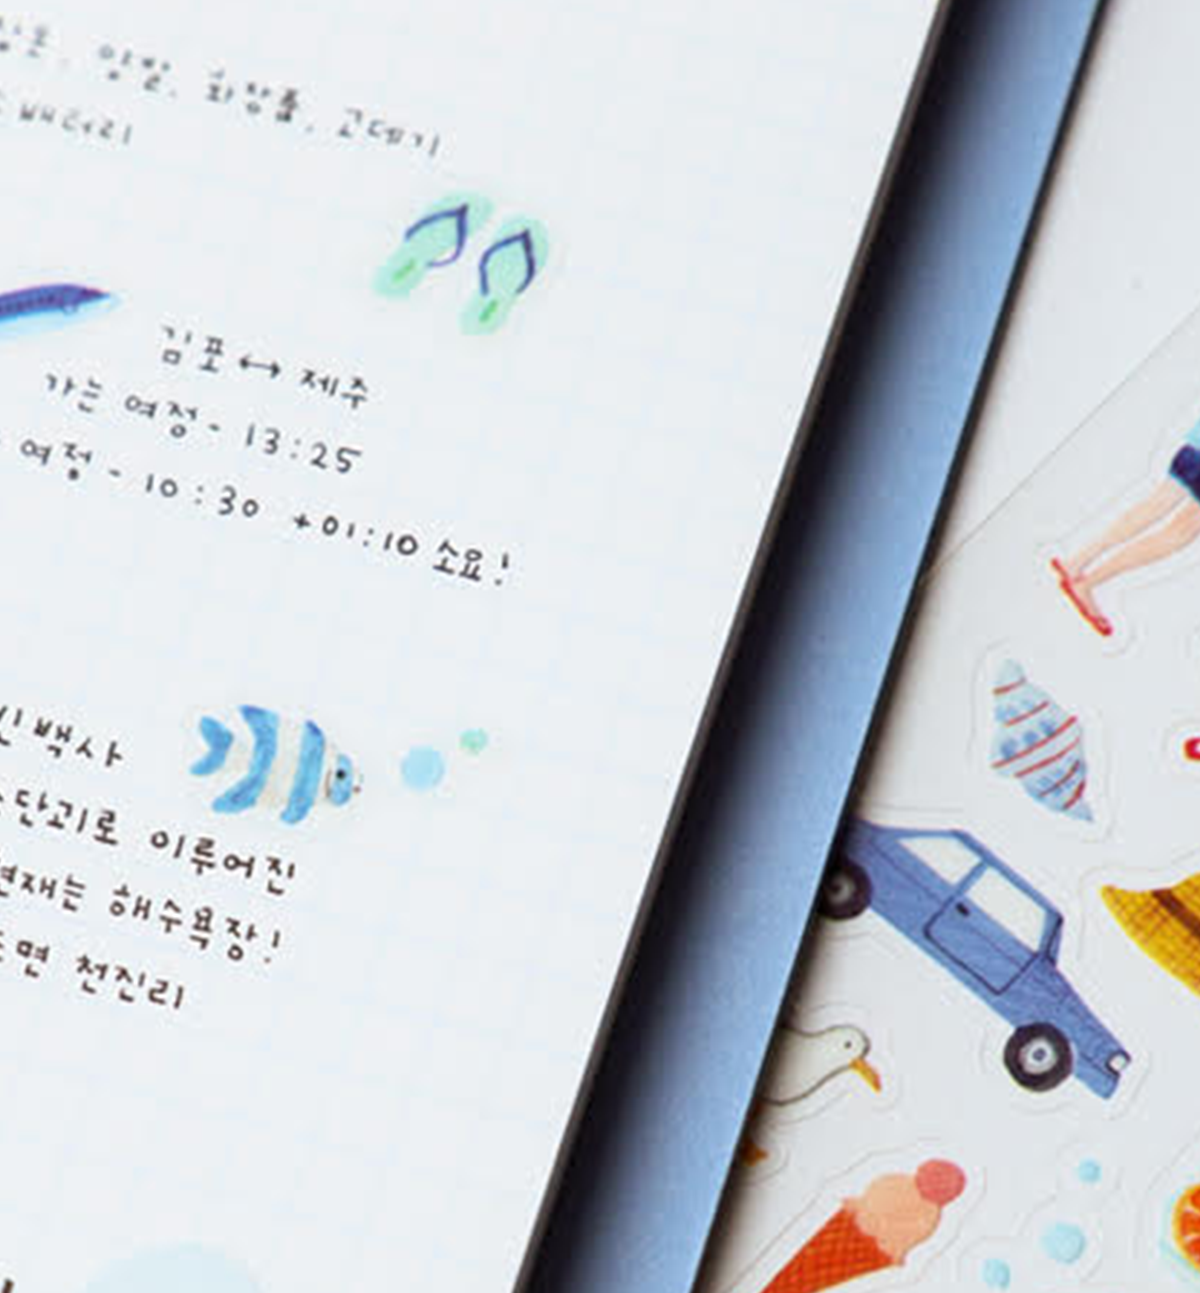 양말, 화장품, 고데기
배터리
김포 ↔ 제주
가는 여정 - 13:25
여정 - 10:30 +01:10 소요!
백사
단괴로 이루어진
현재는 해수욕장!
면 천진리